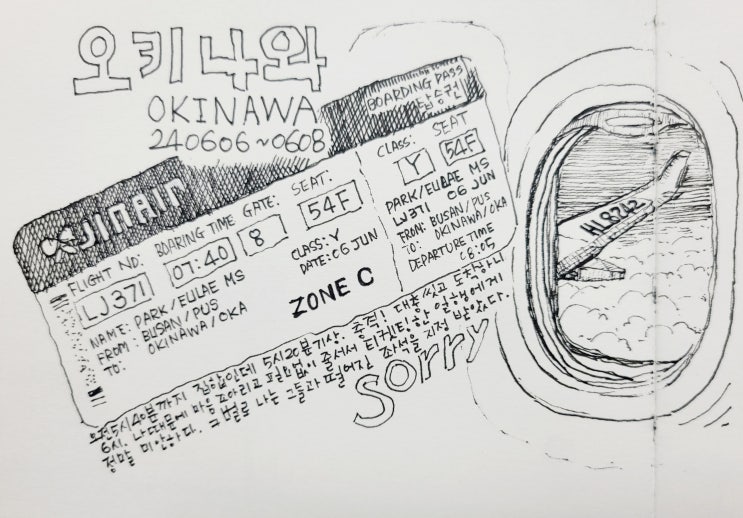 오키나와
OKINAWA
240606~0608
JINAIR
BOARDING PASS
탑승권
FLIGHT NO:
LJ371
BOARING TIME
07:40
GATE:
8
SEAT:
54F
CLASS: Y
DATE: 06 JUN
NAME: PARK/EULAE MS
FROM: BUSAN/PUS
TO: OKINAWA/OKA
ZONE C
CLASS:
Y
SEAT
54F
PARK/EULAE MS
LJ371 06 JUN
FROM: BUSAN/PUS
TO: OKINAWA/OKA
DEPARTURE TIME
08:05
오전5시40분까지 집합인데 5시20분기상. 충격! 대충씻고 도착하니
6시. 나때문에 마음 조아리고 필요없이 줄서서 티케팅한 일행에게
정말 미안하다. 그 벌로 나는 그들과 떨어진 좌석을 지정 받았다.
SORRY
HL8242